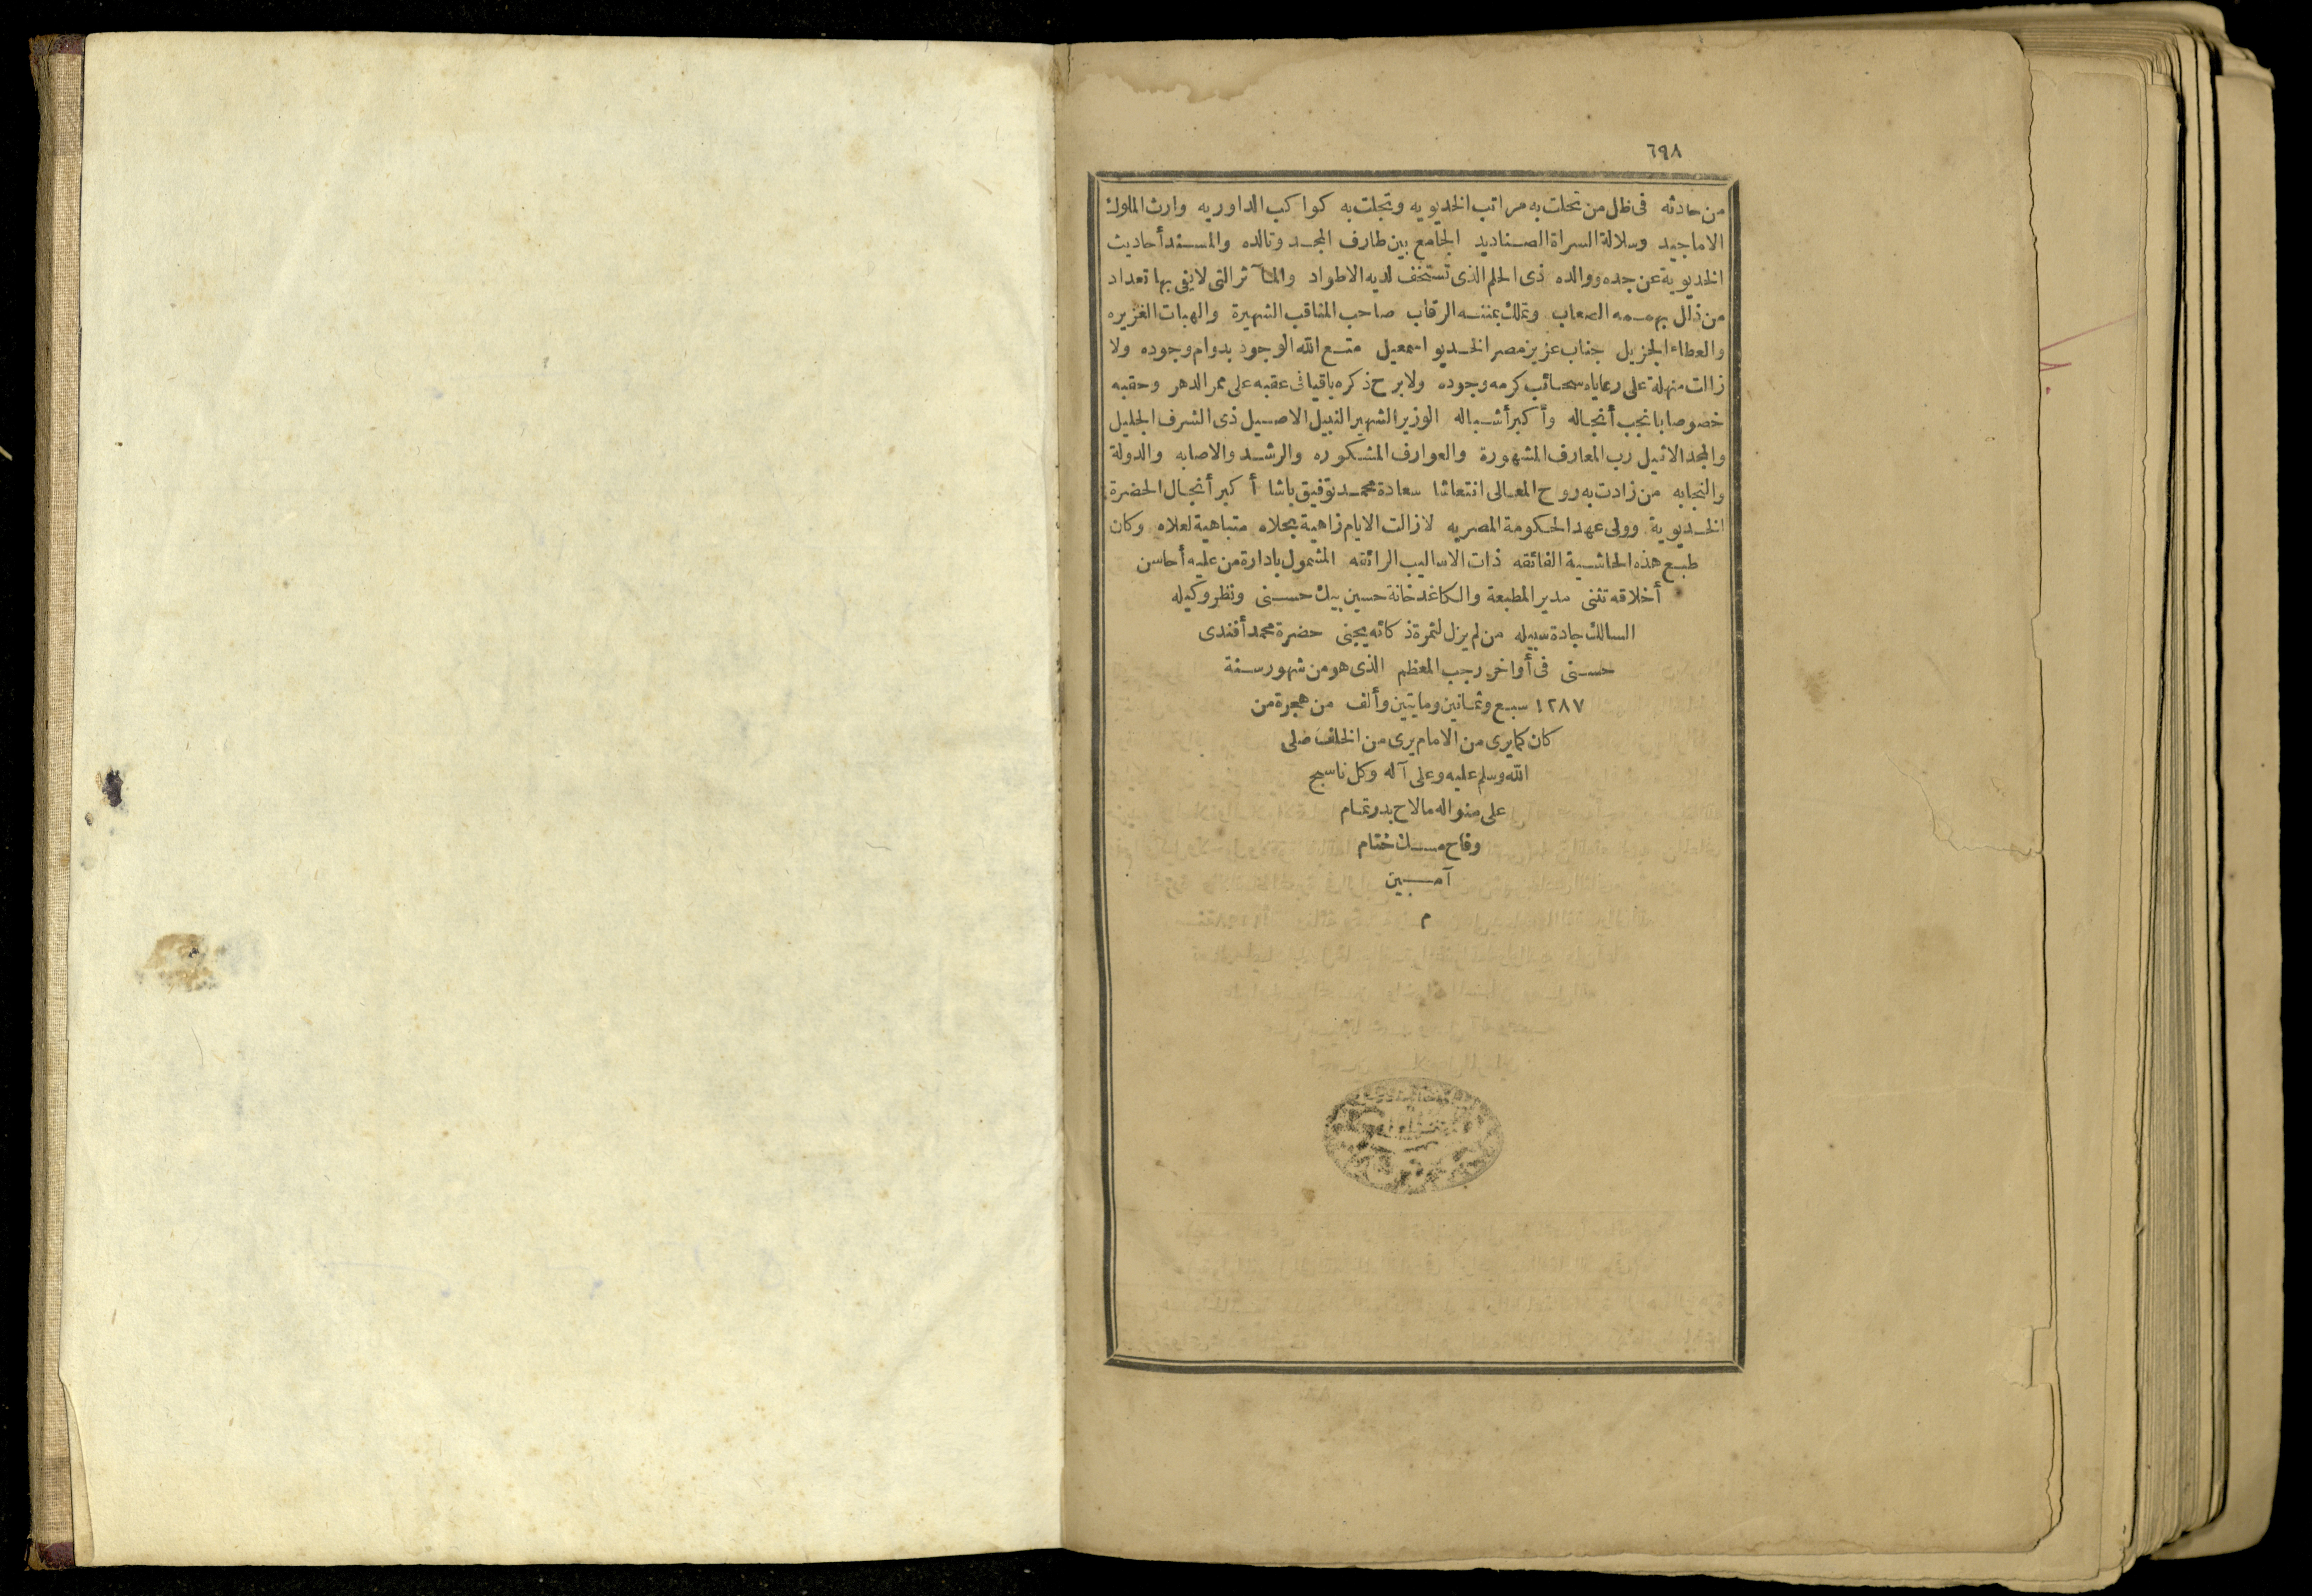 ٦٩٨
من حادثه فى ظل من تحلت به مراتب الخديويه وتجلت به كواكب الداوريه وارث الملوك
الاماجيد وسلالة السراة الصناديد الجامع بين طارف المجد وتالده والمسند أحاديث
الخديوية عن جده ووالده ذى الحلم الذى تستخف لديه الاطواد والمآثر التى لا يفى بها تعداد
من ذلل بهممه الصعاب وتملك بمننه الرقاب صاحب المناقب الشهيرة والهبات الغزيره
والعطاء الجزيل جناب عزيز مصر الخديو اسمعيل متع الله الوجود بدوام وجوده ولا
زالت منهلة على رعاياه سحائب كرمه وجوده ولا برح ذكره باقيا فى عقبه على ممر الدهر وحقبه
خصوصا بانجب أنجاله وأكبر أشباله الوزير الشهير النبيل الاصيل ذى الشرف الجليل
والمجد الاثيل رب المعارف المشهورة والعوارف المشكوره والرشد والاصابه والدولة
والنجابه من زادت به روح المعالى انتعاشا سعادة محمد توفيق باشا أكبر أنجال الحضرة
الخديوية وولى عهد الحكومة المصريه لا زالت الايام زاهية بحلاه متباهية لعلاه وكان
طبع هذه الحاشية الفائقه ذات الاساليب الرائقه المشمول بادارة من عليه أحاسن
أخلاقه تثنى مدير المطبعة والكاغدخانة حسين بيك حسنى ونظر وكيله
السالك جادة سبيله من لم يزل لثمرة ذكائه يجنى حضرة محمد أفندى
حسنى فى أواخر رجب المعظم الذى هو من شهور سنة
١٢٨٧ سبع وثمانين ومايتين وألف من هجرة من
كان كما يرى من الامام يرى من الخلف صلى
الله وسلم عليه وعلى آله وكل ناسج
على منواله ما لاح بدر تمام
وفاح مسك ختام
آمين
م